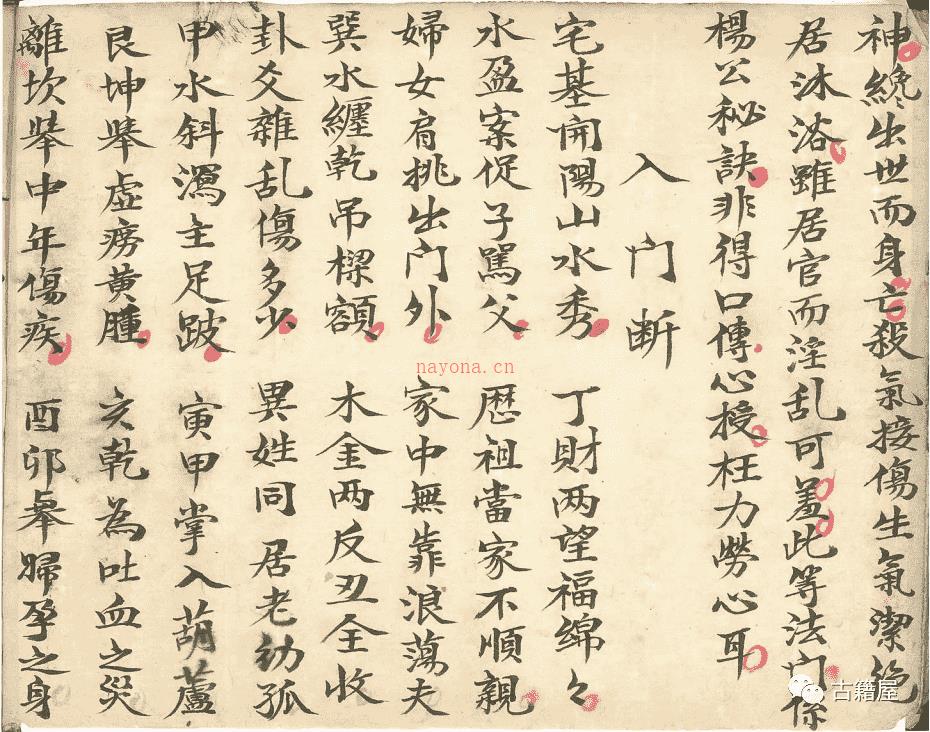 神纔出世而身亡殺氣接傷生氣潔絶
居沐浴雖居官而淫乱可羞此等法门係
楊公秘訣非得口傳心授枉力勞心耳
入门断
宅基開陽山水秀 丁財两望福綿々
水盈案促子罵父 歷祖當家不順親
婦女肩挑出门外 家中無靠浪蕩夫
巽水纏乾吊樑額 木金两反丑全收
卦爻雜乱傷多少 異姓同居老幼孤
甲水斜瀉主足跛 寅甲掌入葫蘆
艮坤犖虚痨黄腫 亥乾為吐血之災
離坎犖中年傷疾 酉卯犖婦孕之身
nayona.cn
古籍屋